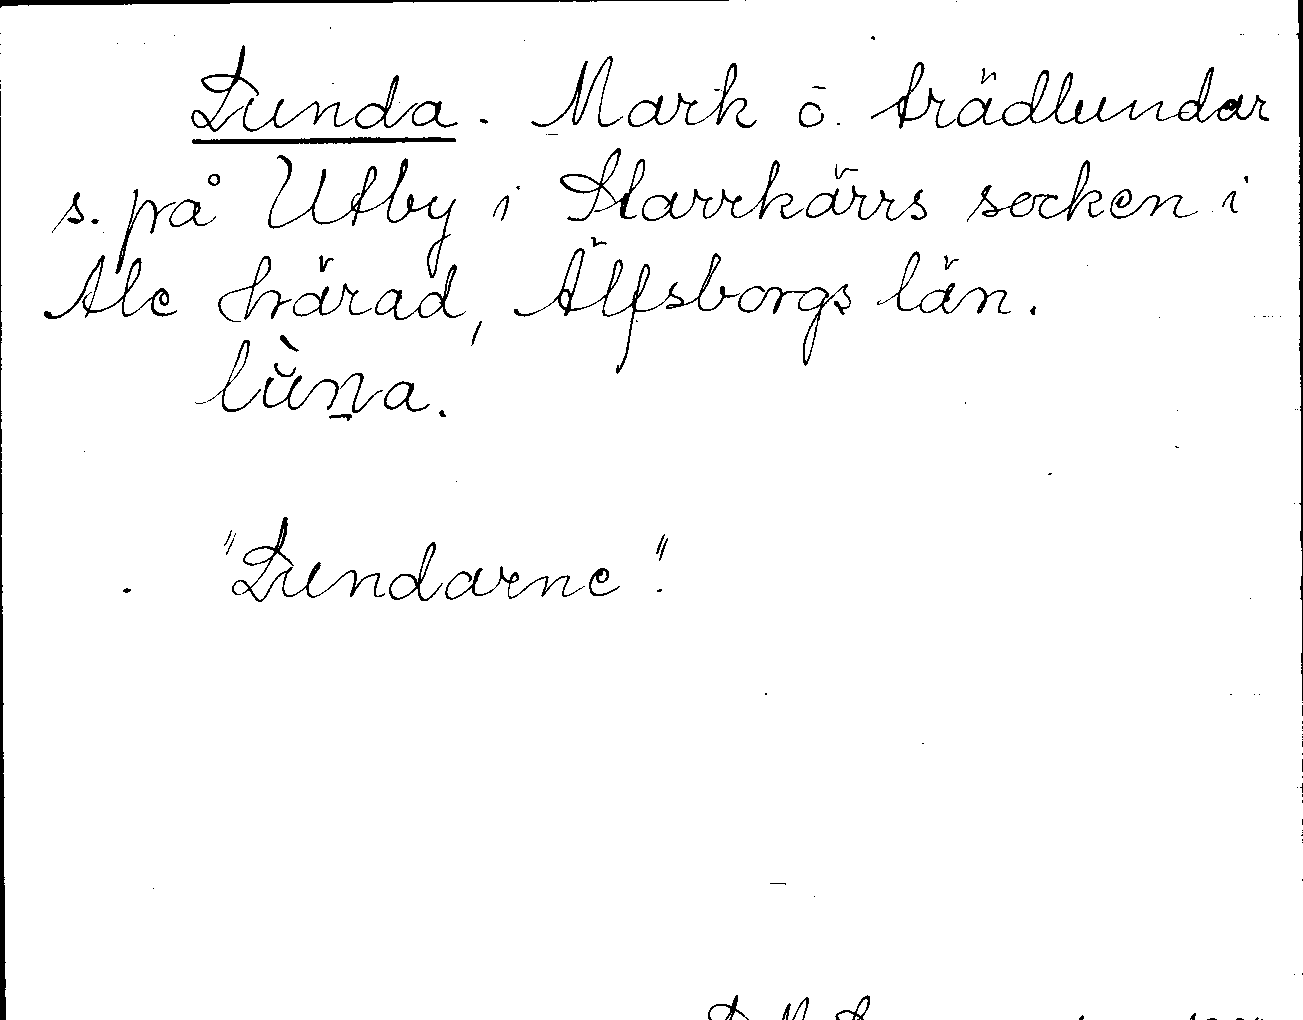 Lunda. Mark o. trädlundar
s. på Utby i Starrkärrs socken i
Ale härad, Älfsborgs län.
lùn̲a.
"Lundarne".